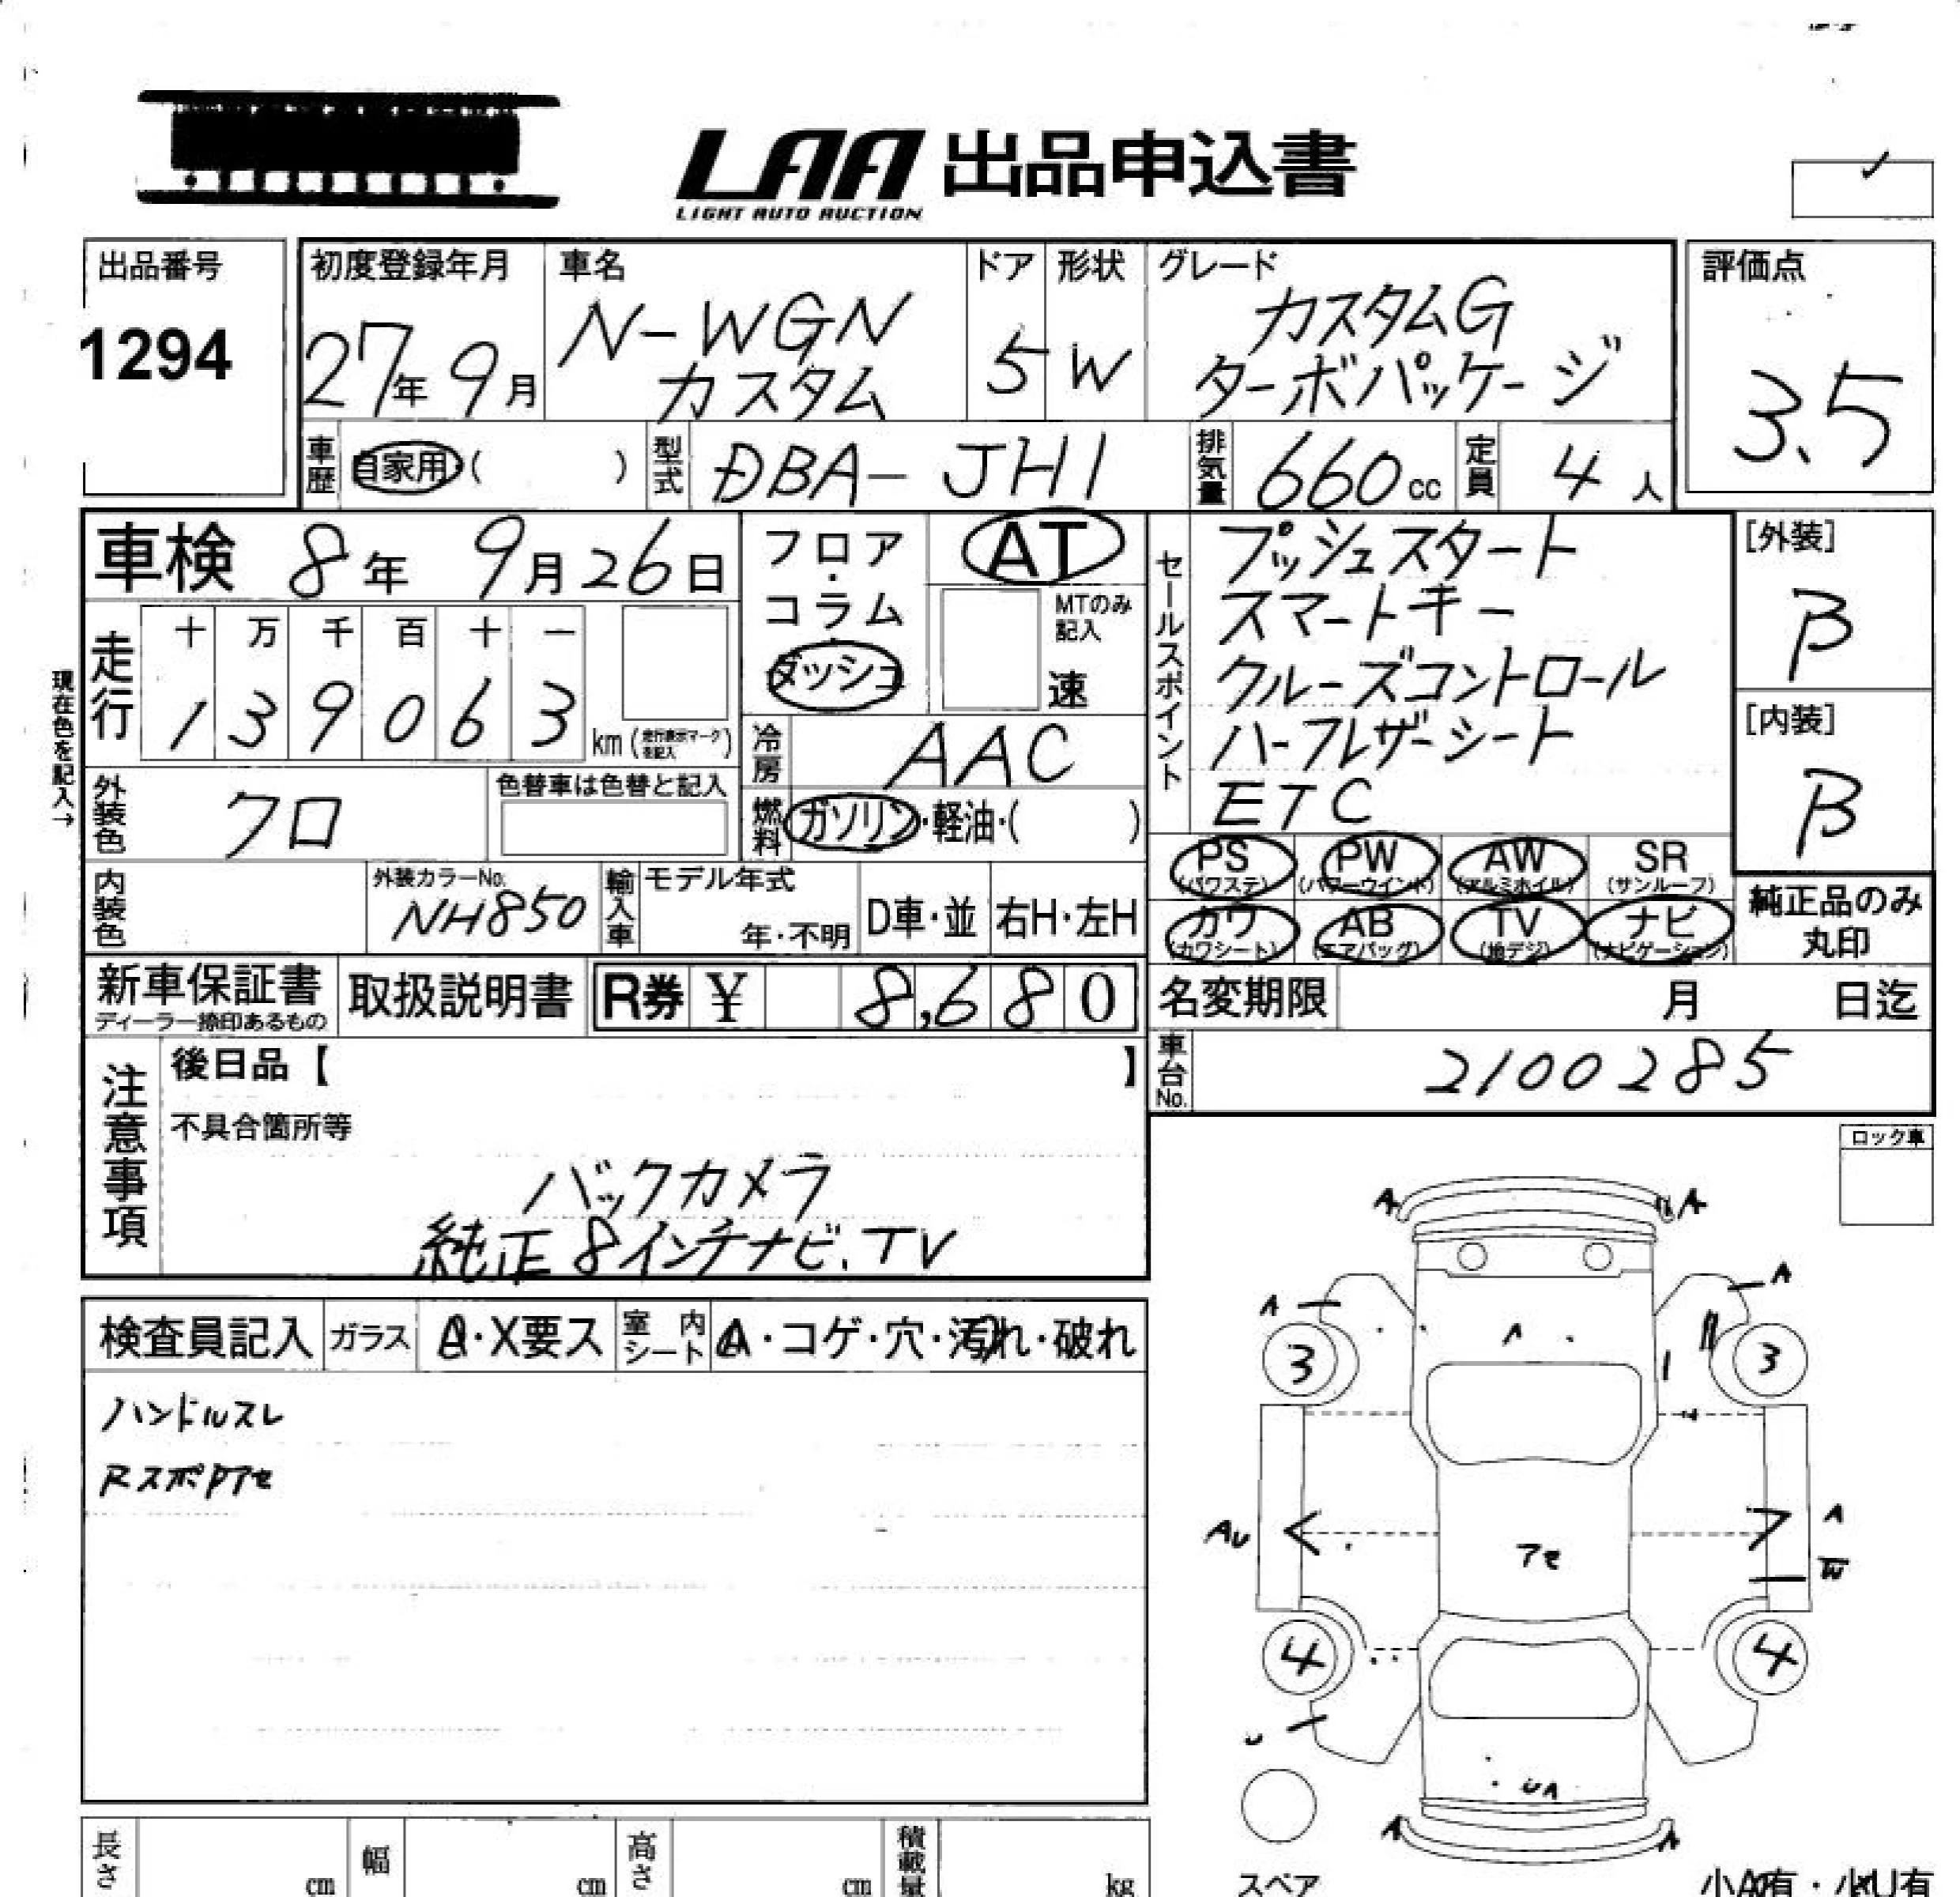 LAA 出品申込書
LIGHT AUTO AUCTION
出品番号
1294
初度登録年月
27年9月
車名
N-WGN
カスタム
ドア
5
形状
W
グレード
カスタムG
ターボパッケージ
評価点
3.5
車歴 自家用 ( )
型式 DBA-JH1
排気量 660cc
定員 4人
車検 8年 9月 26日
走行
十 万 千 百 十 一
1 3 9 0 6 3
km (走行表示マークを記入)
現在色を記入→
フロア・コラム
ダッシュ
AT
MTのみ記入
速
冷房 AAC
燃料 ガソリン・軽油・( )
セールスポイント
プッシュスタート
スマートキー
クルーズコントロール
ハーフレザーシート
ETC
[外装]
B
[内装]
B
外装色 クロ
色替車は色替と記入
内装色
外装カラーNo.
NH850
輸入車
モデル年式
年・不明
D車・並
右H・左H
PS (パワステ)
PW (パワーウインド)
AW (アルミホイル)
SR (サンルーフ)
カワ (カワシート)
AB (エアバッグ)
TV (地デジ)
ナビ (ナビゲーション)
純正品のみ
丸印
新車保証書
ディーラー捺印あるもの
取扱説明書
R券 ¥ 8,680
名変期限 月 日迄
車台No. 2100285
注意事項
後日品【 】
不具合箇所等
バックカメラ
純正8インチナビ.TV
ロック車
検査員記入
ガラス A・X要ス
室内シート A・コゲ・穴・汚れ・破れ
ハンドルスレ
RスポPアセ
A A
A A
3 A 3
AU A
アセ
W
4 4
U
UA
A A
スペア
長さ cm
幅 cm
高さ cm
積載量 kg
小A有・小U有